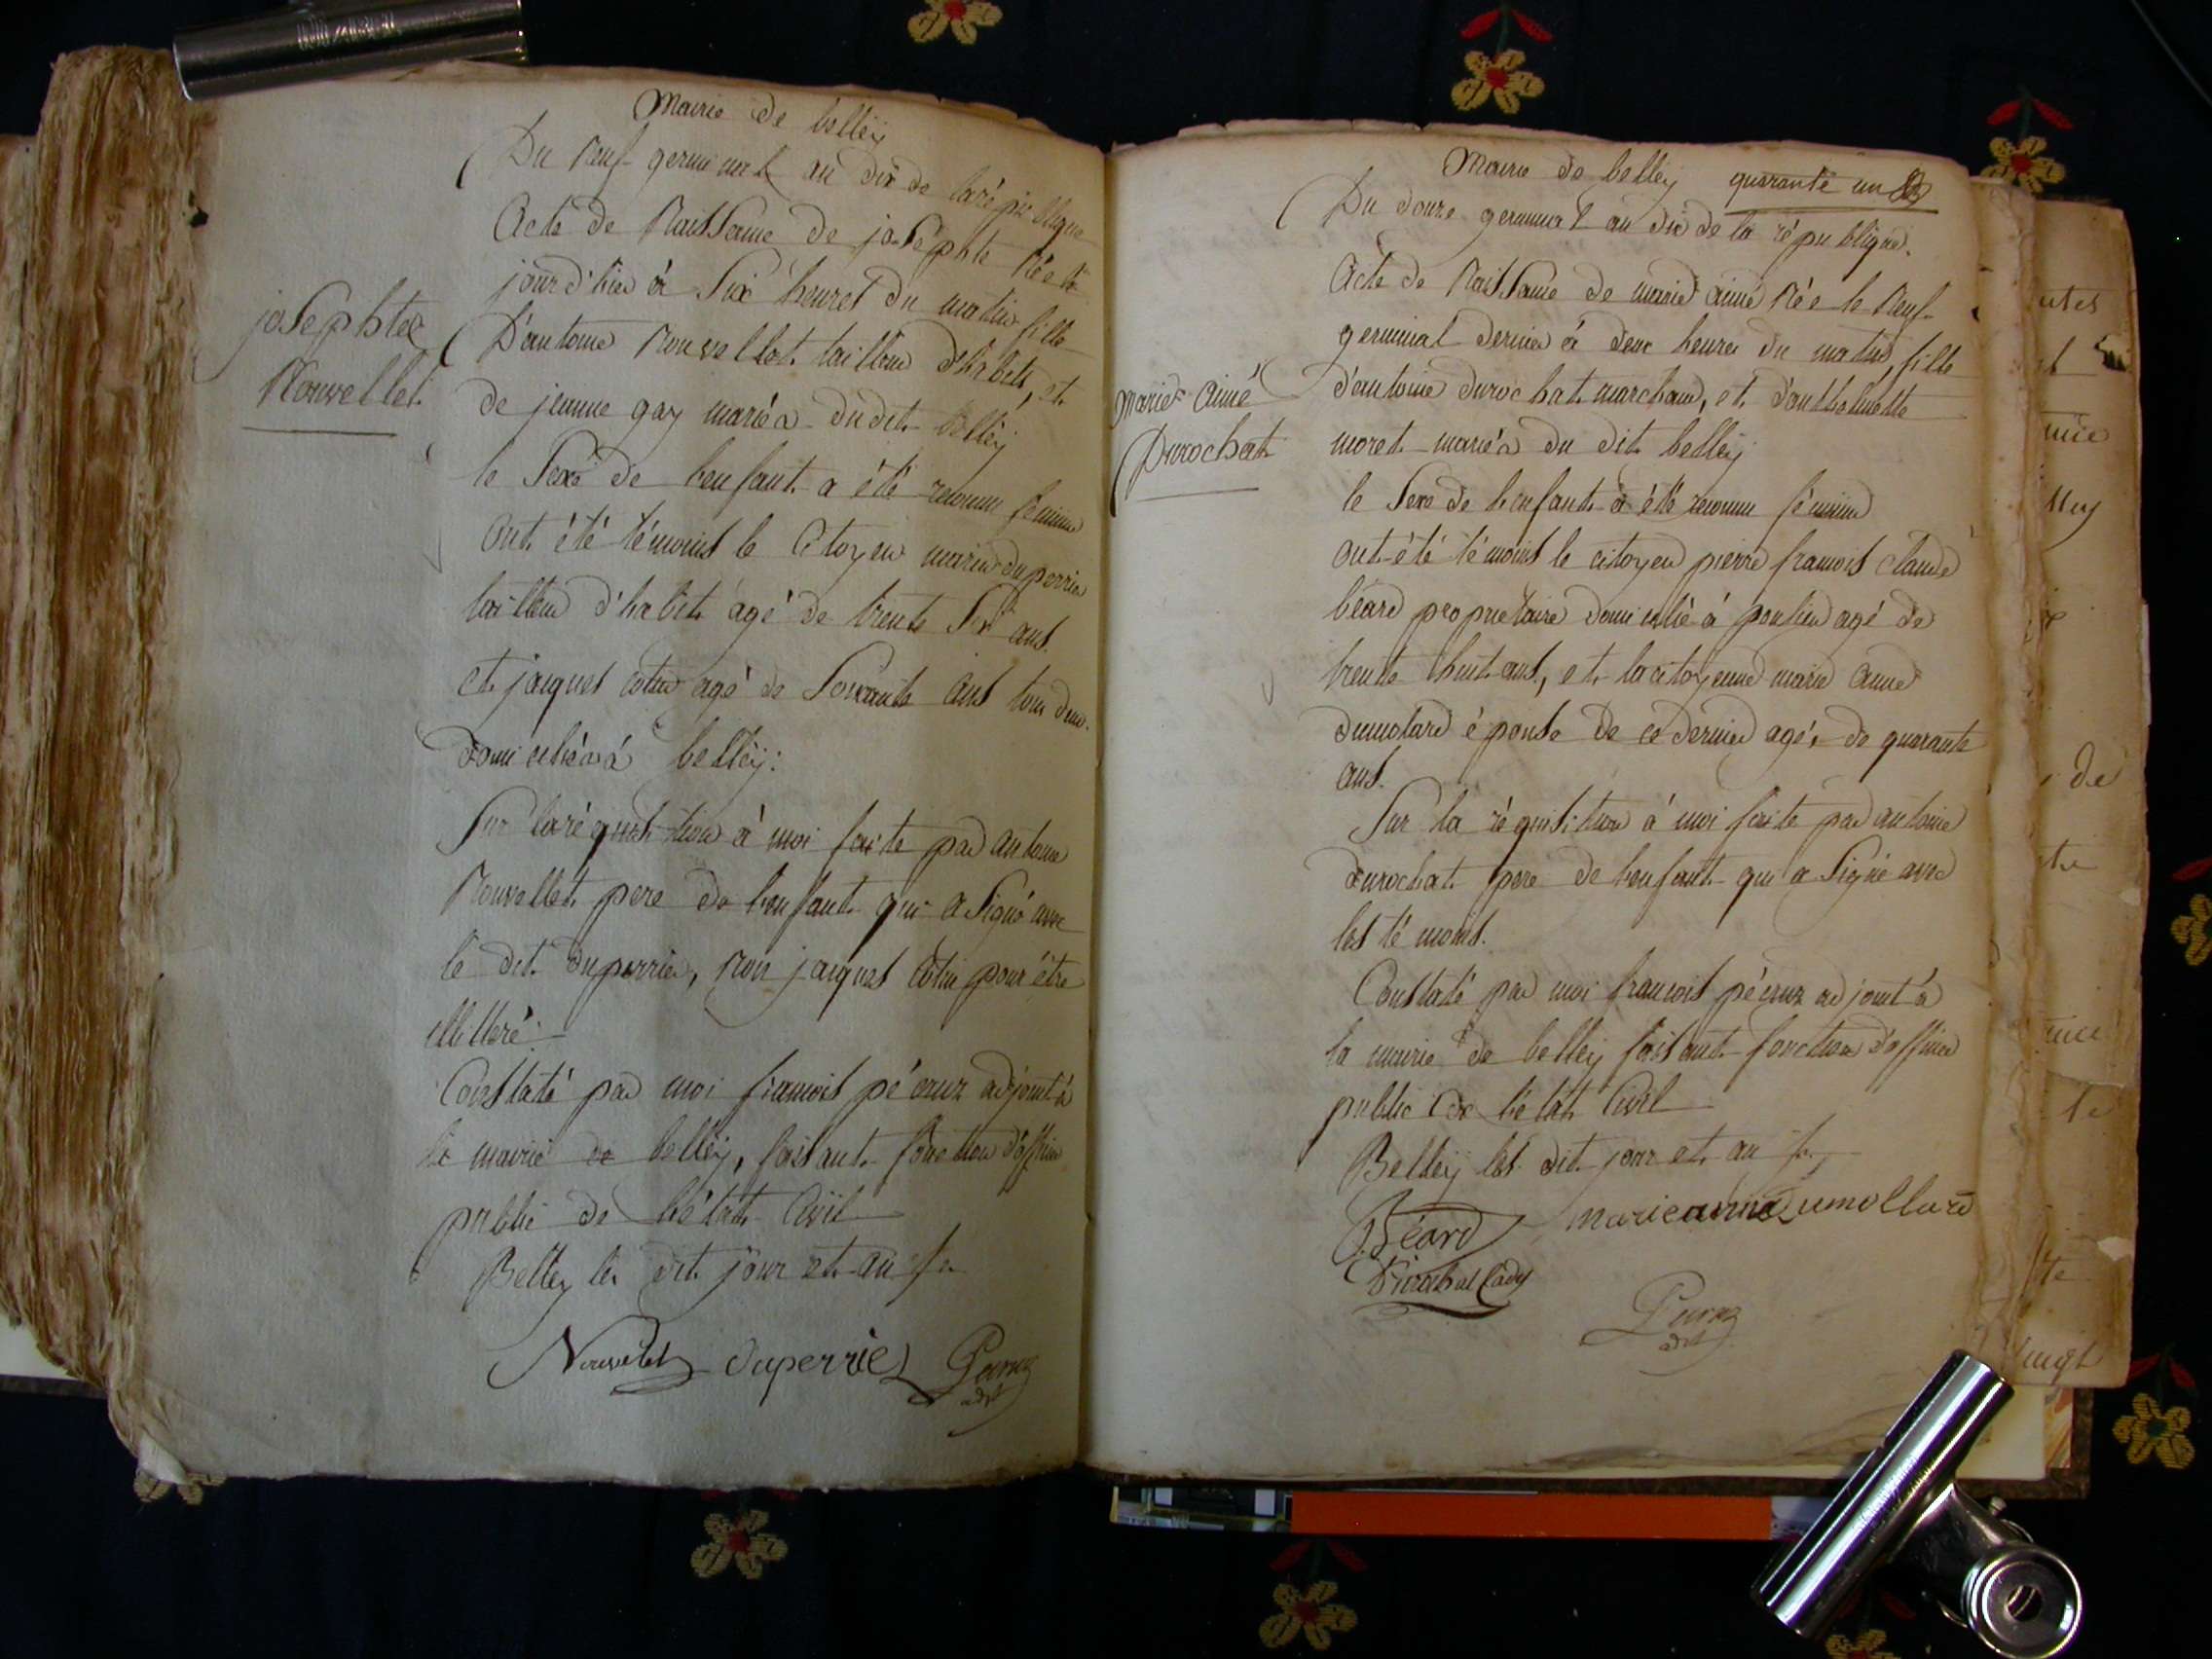 Mairie de belley
Du neuf germinal an dix de la république
Acte de Naissance de josephte née ce
jourd'hui à Six heures du matin fille
D'antoine Nouvellet tailleur d'habits, et
de jeanne gay mariés dudit belley
josephte
Nouvellet
le Sexe de lenfant a été reconnu féminin
Ont été témoins le Citoyen marin duperrier
tailleur d'habits agé de trente Six ans
et jacques cotin agé de Soixante ans tous deux
domiciliés à belley:
Sur la réquisition à moi faite par antoine
Nouvellet pere de lenfant qui a Signé avec
le dit duperrier, non jacques Cotin pour être
illitteré
Constaté par moi francois pécruz adjoint à
la mairie de belley, faisant fonction d'officier
public de l'état Civil
Belley les dit jour et an
Nouvellet duperriel
adjt
Mairie de belley quarante un
Du douze germinal an dix de la république.
Acte de Naissance de marie aimé née le neuf
germinal dernier à deux heures du matin, fille
d'antoine durochat marchand, et d'anthelmette
moret mariés du dit belley
Marie Aimé
Durochat
le Sexe de lenfant a été reconnu féminin
ont été témoins le citoyen pierre francois claude
béard propriétaire domicilié à agé de
trente huit ans, et la citoyenne marie anne
dumolard épouse de ce dernier agée de quarante
ans.
Sur la réquisition à moi faite par antoine
durochat pere de lenfant qui a Signé avec
les témoins.
Constaté par moi francois pécruz adjoint à
la mairie de belley faisant fonction d'officier
public de l'état Civil
Belleÿ les dit jour et an
Béard marie anne Dumollard
adjt